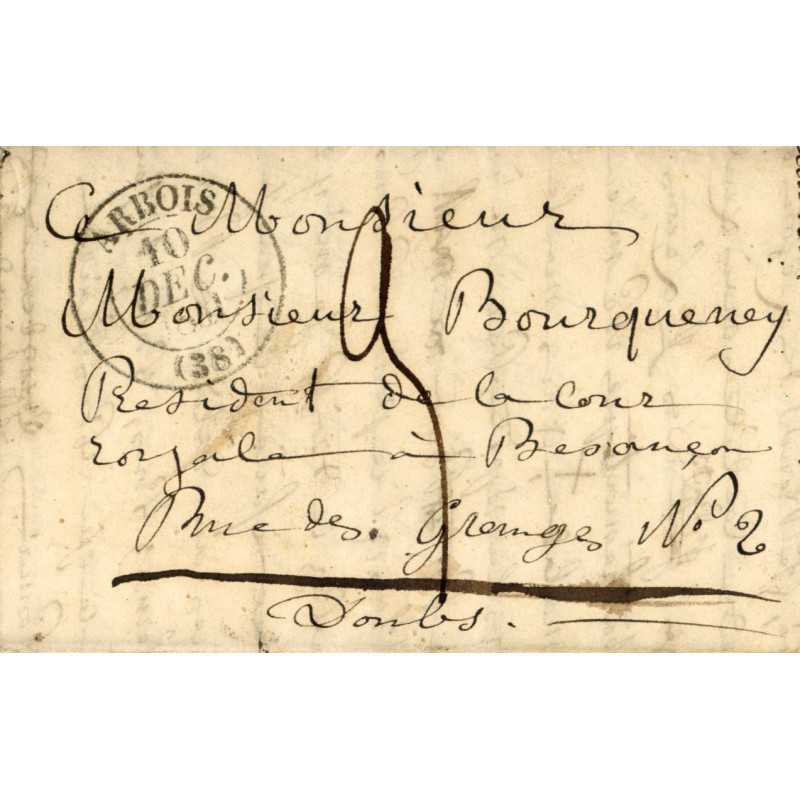 ARBOIS
10
DEC.
(38)
A Monsieur
Monsieur Bourqueney
President de la Cour
royale à Besançon
Rue des Granges No 2
Doubs.